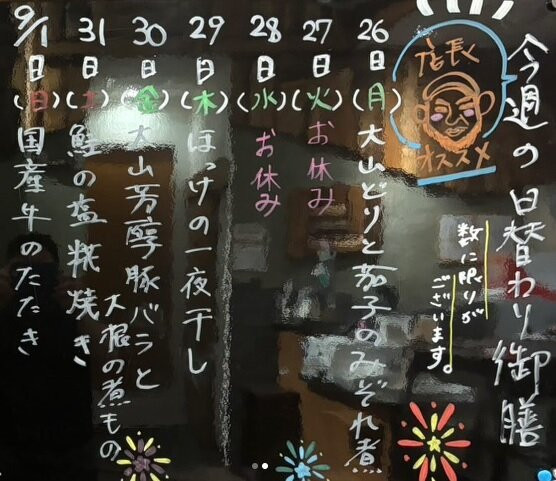 今週の日替わり御膳
数に限りが
ございます。
店長
オススメ
26日(月)大山どりと茄子のみぞれ煮
27日(火)お休み
28日(水)お休み
29日(木)ほっけの一夜干し
30日(金)大山芳醇豚バラと
大根の煮もの
31日(土)鮭の塩糀焼き
9/1日(日)国産牛のたたき